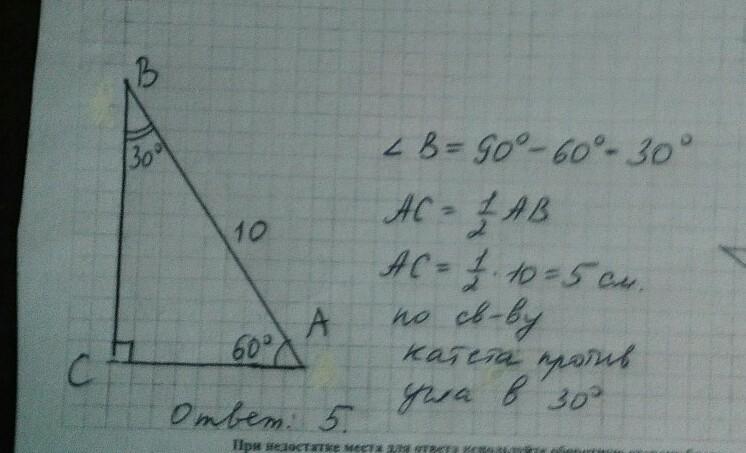 B
30°
10
A
60°
C
∠ B = 90° - 60° = 30°
AC = 1/2 AB
AC = 1/2 · 10 = 5 см.
по св-ву
катета против
угла в 30°
Ответ: 5.
При недостатке места для ответа используйте оборотную